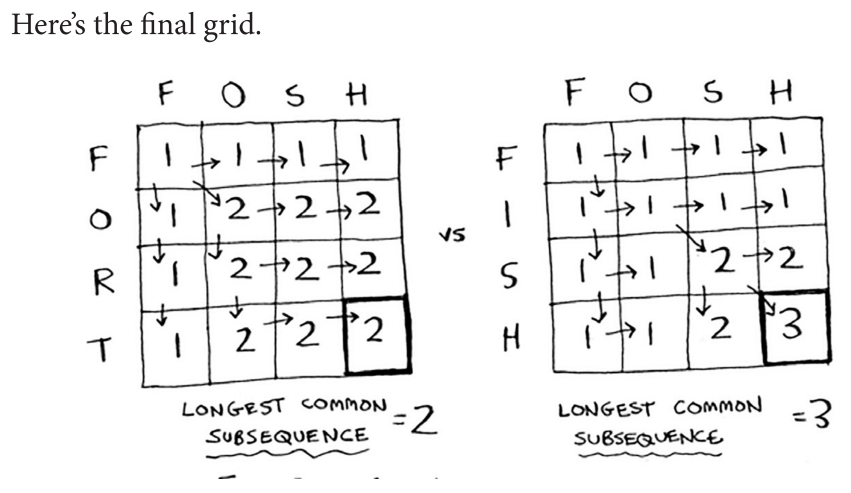 Here's the final grid.
F O S H
F 1 → 1 → 1 → 1
O 1 2 → 2 → 2
R 1 2 → 2 → 2
T 1 2 → 2 → 2
LONGEST COMMON SUBSEQUENCE = 2
vs
F O S H
F 1 → 1 → 1 → 1
I 1 → 1 → 1 → 1
S 1 → 1 2 → 2
H 1 → 1 2 3
LONGEST COMMON SUBSEQUENCE = 3